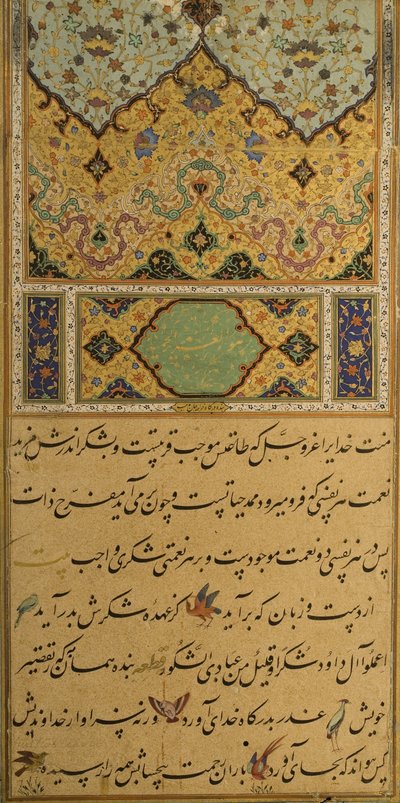 منت خدایرا عزوجل که طاعتش موجب قربتست و بشکر اندرش مزید
نعمت هر نفسی که فرو میرود ممد حیاتست و چون بر می آید مفرح ذات
پس در هر نفسی دو نعمت موجودست و بر هر نعمتی شکری واجب بیت
از دست و زبان که برآید کز عهده شکرش بدر آید
اعملوا آل داود شکرا و قلیل من عبادی الشکور قطعه بنده همان به که ز تقصیر
خویش عذر بدرگاه خدای آورد ورنه سزاوار خداوندیش
کس نتواند که بجای آورد باران رحمت بیحسابش همه را رسیده